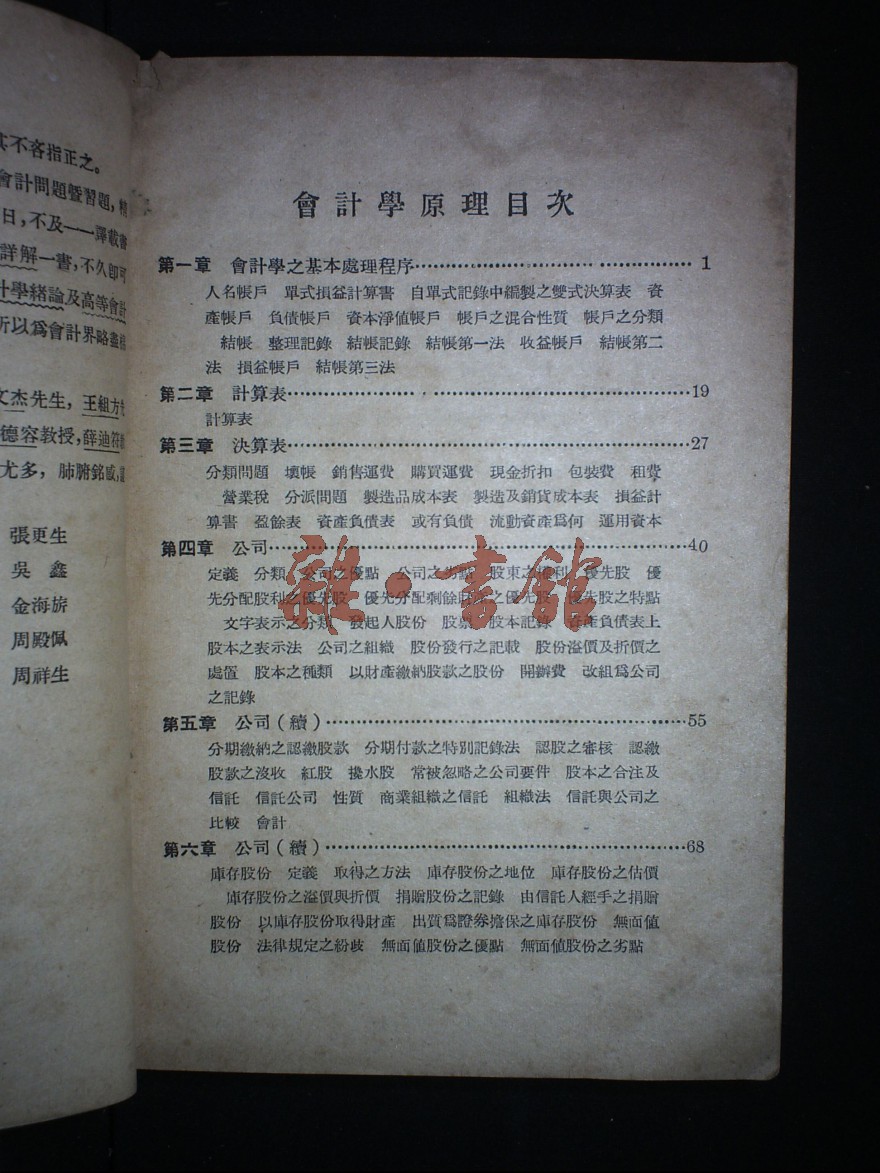 其不吝指正之。
會計問題暨習題,
日,不及一一譯載
詳解一書,不久卽可
計學緒論及高等會計
所以爲會計界略盡
文杰先生,王組方
德容教授,薛迪符
尤多,肺腑銘感,
張更生
吳鑫
金海旂
周殿佩
周祥生
會計學原理目次
第一章 會計學之基本處理程序 1
人名帳戶 單式損益計算書 自單式記錄中編製之雙式決算表 資
產帳戶 負債帳戶 資本淨値帳戶 帳戶之混合性質 帳戶之分類
結帳 整理記錄 結帳記錄 結帳第一法 收益帳戶 結帳第二
法 損益帳戶 結帳第三法
第二章 計算表 19
計算表
第三章 決算表 27
分類問題 壞帳 銷售運費 購買運費 現金折扣 包裝費 租費
營業稅 分派問題 製造品成本表 製造及銷貨成本表 損益計
算書 盈餘表 資產負債表 或有負債 流動資產爲何 運用資本
第四章 公司 40
定義 分類 公司之優點 公司之劣點 股東之權利 優先股 優
先分配股利之優先股 優先分配剩餘財產之優先股 優先股之特點
文字表示之分類 發起人股份 股票 股本記錄 資產負債表上
股本之表示法 公司之組織 股份發行之記載 股份溢價及折價之
處置 股本之種類 以財產繳納股款之股份 開辦費 改組爲公司
之記錄
第五章 公司(續) 55
分期繳納之認繳股款 分期付款之特別記錄法 認股之審核 認繳
股款之沒收 紅股 攙水股 常被忽略之公司要件 股本之合注及
信託 信託公司 性質 商業組織之信託 組織法 信託與公司之
比較 會計
第六章 公司(續) 68
庫存股份 定義 取得之方法 庫存股份之地位 庫存股份之估價
庫存股份之溢價與折價 捐贈股份之記錄 由信託人經手之捐贈
股份 以庫存股份取得財產 出質爲證券擔保之庫存股份 無面値
股份 法律規定之紛歧 無面値股份之優點 無面値股份之劣點
雜·書館